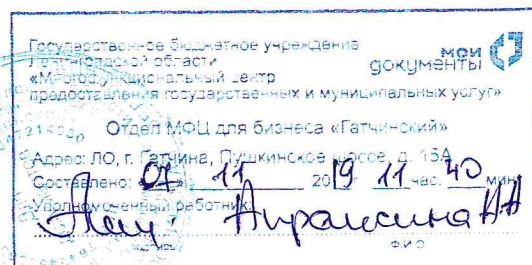 Государственное бюджетное учреждение
Ленинградской области
мои
документы
«Многофункциональный центр
предоставления государственных и муниципальных услуг»
Отдел МФЦ для бизнеса «Гатчинский»
Адрес: ЛО, г. Гатчина, Пушкинское шоссе, д. 15А
Составлено: «07» 11 2019 11 час. 40 мин
Уполномоченный работник:
Апраксина А.А
Ф.И.О